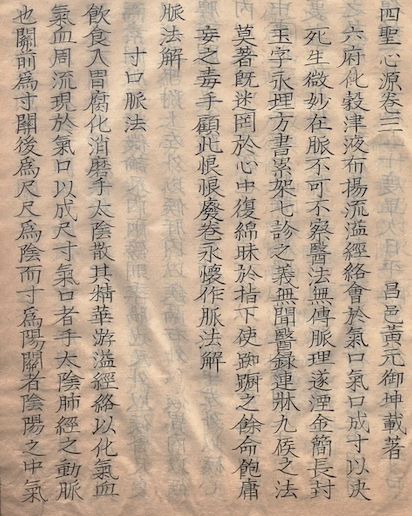 四聖心源卷三
昌邑黃元御坤載著
六府化穀津液布揚流溢經絡會於氣口氣口成寸以決
死生微妙在脈不可不察醫法無傳脈理遂湮金簡長封
玉字永埋方書累架七診之義無聞醫錄連牀九候之法
莫著既迷罔於心中復綿昧於指下使踟躕之餘命飽庸
妄之毒手顧此悢悢廢卷永懷作脈法解
脈法解
寸口脈法
飲食入胃腐化消磨手太陰散其精華游溢經絡以化氣血
氣血周流現於氣口以成尺寸氣口者手太陰肺經之動脈
也關前爲寸關後爲尺尺爲陰而寸爲陽關者陰陽之中氣